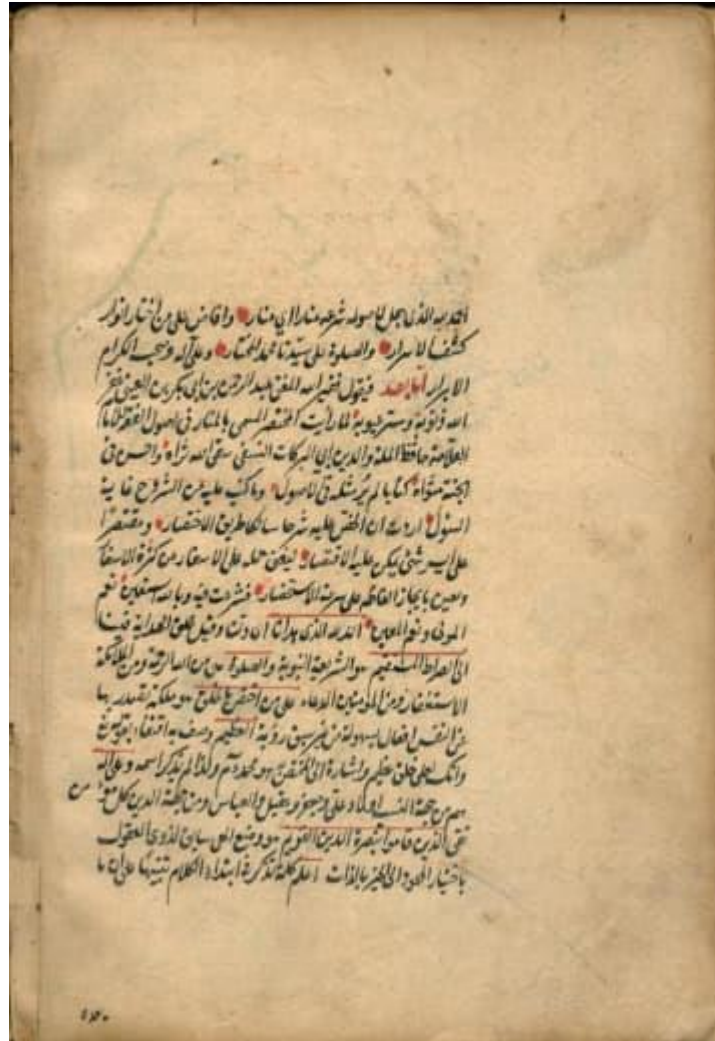 الحمد لله الذى جعل لاصول شرعه منارا اى منار وافاض على من اختار انوار
كشف الاسرار والصلوة على سيدنا محمد المختار وعلى آله وصحبه الكرام
الابرار اما بعد فيقول فقير الله الغنى عبد الرحمن بن ابى بكر بن العينى غفر
الله ذنوبه وستر عيوبه لما رأيت المختصر المسمى بالمنار فى اصول الفقه للامام
العلامة حافظ الملة والدين ابى البركات النسفى سقى الله ثراه واحسن فى
الجنة مثواه كتابا لم ير مثله فى الاصول وما كتب عليه من الشروح غاية
السئول اردت ان الخص عليه شرحا سالكا طريق الاختصار ومقتصرا
على ايسر شئ يمكن عليه الاقتصار ليغنى حمله على الاسفار من كثرة الاسفار
ويعين بايجاز الفاظه على سرعة الاستحضار فشرعت فيه وبالله استعين نعم
المولى ونعم المعين الحمد لله الذى هدانا اى دلنا وقيل خلق الهداية فينا
الى الصراط المستقيم هو الشريعة النبوية والصلوة هى من الله الرحمة ومن الملائكة
الاستغفار ومن المؤمنين الدعاء على من اختص بالخلق هو ملكة تصدر بها
عن النفس افعال بسهولة من غير سبق روية العظيم وصف به اقتفاء بقوله تع
وانك لعلى خلق عظيم واشارة الى المختص هو محمد عم ولذا لم يذكر اسمه وعلى آله
هم من جهة النسب اولاد على وجعفر وعقيل والعباس ومن جهة الدين كل مؤمن
تقى الذين قاموا بنصرة الدين القويم هو وضع الهى سابق لذوى العقول
باختيار المحمود الى الخير بالذات اعلم كلمة تذكر فى ابتداء الكلام تنبيها على ان ما